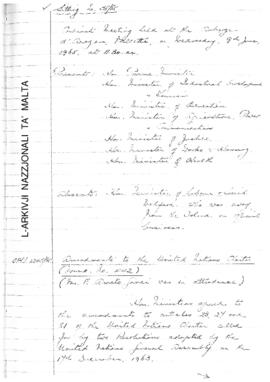 Sitting No.
Cabinet Meeting held at the Auberge
d'Aragon, Valletta, on Wednesday, 9th June,
1965, at 11.00 a.m.
Presents: Hon. Prime Minister
Hon. Minister of Industrial Development
& Tourism
Hon. Minister of Education
Hon. Minister of Agriculture, Power
& Communications
Hon. Minister of Justice
Hon. Minister of Works & Housing
Hon. Minister of Health
Absents: Hon. Minister of Labour & Social
Welfare who was away
from the Island on official
business.
L-ARKIVJI NAZZJONALI TA' MALTA
Amendments to the United Nations Charter
(Memo. No.
(Mr. was in attendance)
Hon. Ministers agreed to
the amendments to articles 23, 27 and
61 of the United Nations Charter called
for by two Resolutions adopted by the
United Nations General Assembly on the
17th December, 1963.